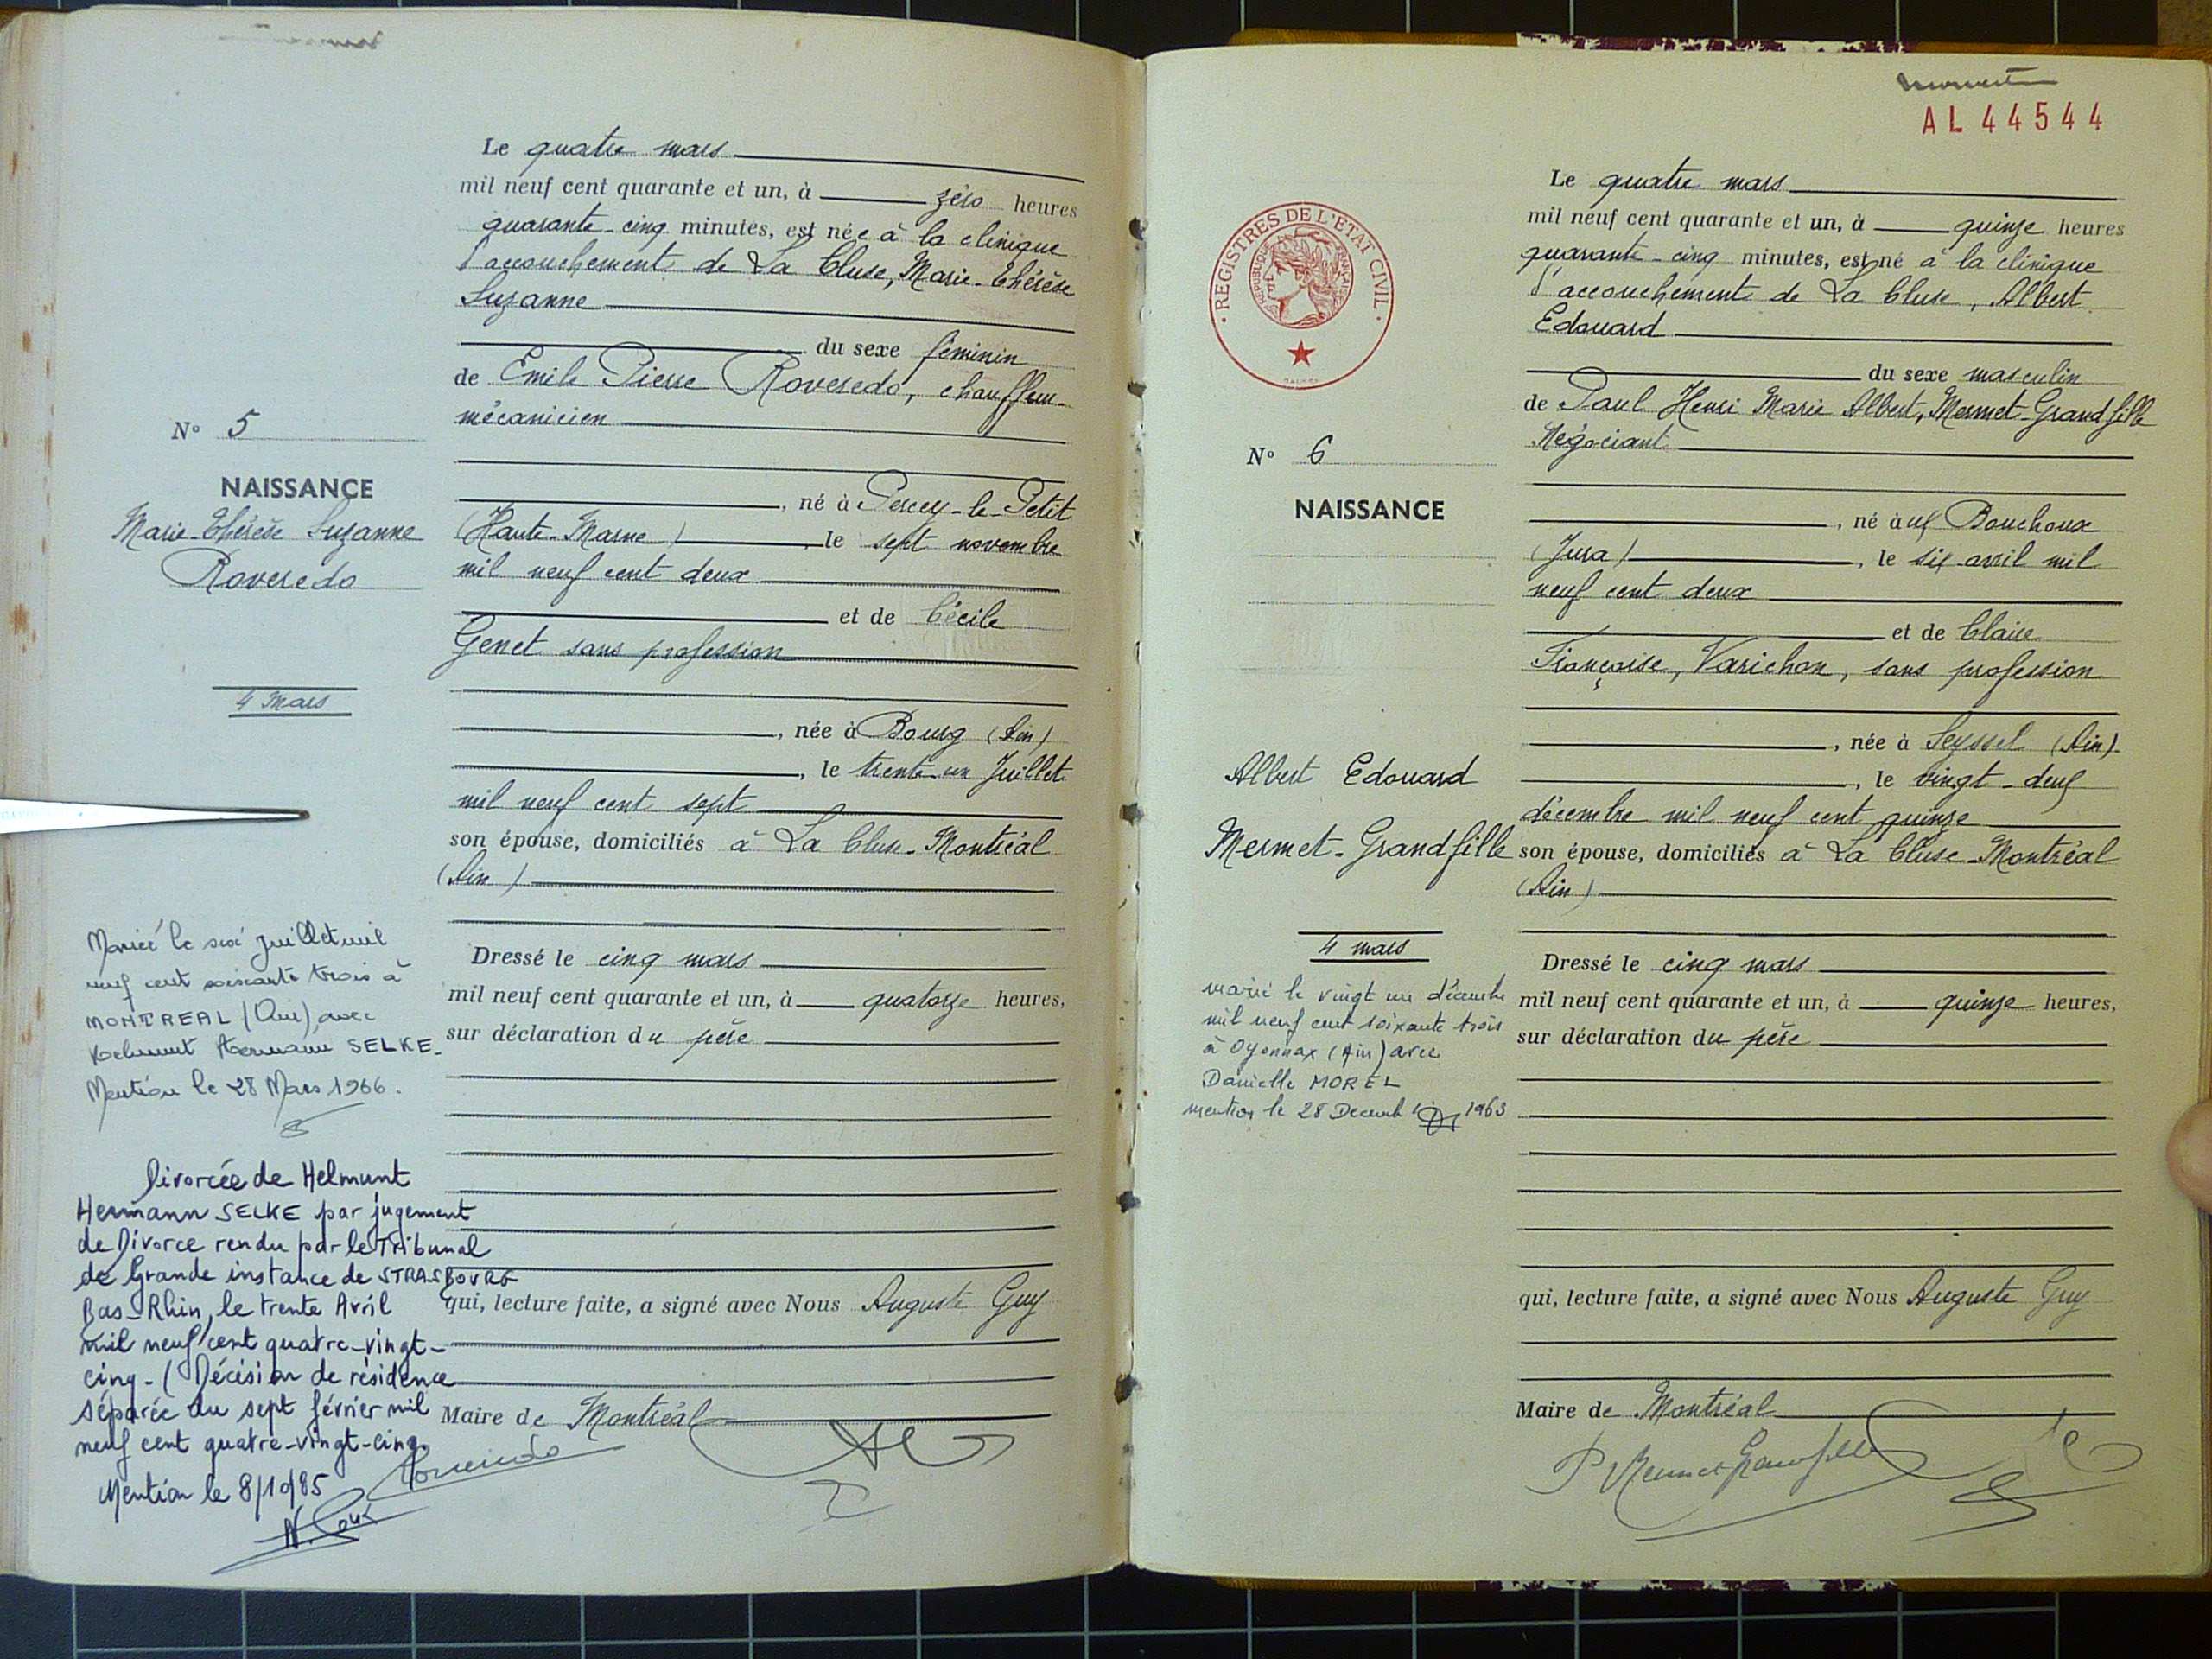 Le quatre mars
mil neuf cent quarante et un, à zéro heures
quarante-cinq minutes, est née à la clinique
d'accouchement de La Cluse, Marie-Thérèse
Suzanne
du sexe féminin
de Emile Pierre Roveredo, chauffeur-
mécanicien
N° 5
NAISSANCE
Marie-Thérèse Suzanne
Roveredo
4 Mars
, né à Percey-le-Petit
(Haute-Marne), le sept novembre
mil neuf cent deux
et de Cécile
Genet sans profession
, née à Bourg (Ain)
, le trente-un Juillet
mil neuf cent sept
son épouse, domiciliés à La Cluse-Montréal
(Ain)
Dressé le cinq mars
mil neuf cent quarante et un, à quatorze heures,
sur déclaration du père
qui, lecture faite, a signé avec Nous Auguste Guy
Maire de Montréal
Mariée le six juillet mil
neuf cent soixante trois à
MONTREAL (Ain) avec
Helmunt Hermann SELKE.
Mention le 28 Mars 1966.
Divorcée de Helmunt
Hermann SELKE par jugement
de Divorce rendu par le Tribunal
de Grande instance de STRASBOURG
Bas-Rhin, le trente Avril
mil neuf cent quatre-vingt-
cinq - (Décision de résidence
séparée du sept février mil
neuf cent quatre-vingt-cinq.
Mention le 8/10/85
Roveredo
AL 44544
REGISTRES DE L'ETAT CIVIL
REPUBLIQUE FRANÇAISE
Le quatre mars
mil neuf cent quarante et un, à quinze heures
quarante-cinq minutes, est né à la clinique
d'accouchement de La Cluse, Albert
Edouard
du sexe masculin
de Paul Henri Marie Albert, Mermet-Grandfille
Négociant
N° 6
NAISSANCE
Albert Edouard
Mermet-Grandfille
4 mars
, né aux Bouchoux
(Jura), le six avril mil
neuf cent deux
et de Claire
Françoise, Varichon, sans profession
, née à Seyssel (Ain).
, le vingt-deux
décembre mil neuf cent quinze
son épouse, domiciliés à La Cluse-Montréal
(Ain)
Dressé le cinq mars
mil neuf cent quarante et un, à quinze heures,
sur déclaration du père
qui, lecture faite, a signé avec Nous Auguste Guy
Maire de Montréal
P Mermet Grandfille
marié le vingt un décembre
mil neuf cent soixante trois
à Oyonnax (Ain) avec
Danielle MOREL
mention le 28 Decemb 1963